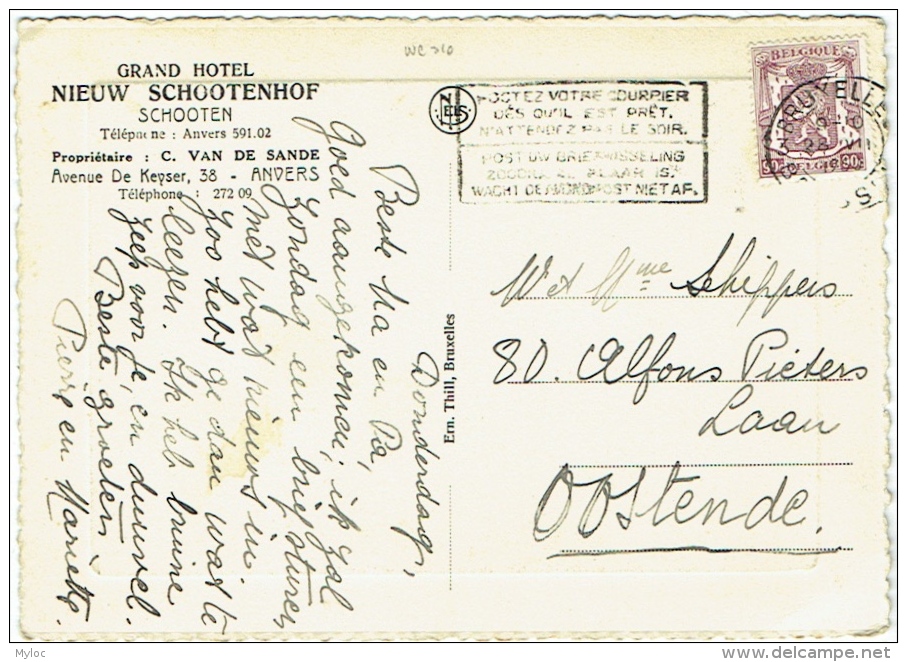 WC 310
GRAND HOTEL
NIEUW SCHOOTENHOF
SCHOOTEN
Téléphone : Anvers 591.02
Propriétaire : C. VAN DE SANDE
Avenue De Keyser, 38 - ANVERS
Téléphone : 272 09
NELS
POSTEZ VOTRE COURRIER
DÈS QU'IL EST PRÊT.
N'ATTENDEZ PAS LE SOIR.
POST UW BRIEFWISSELING
ZOODRA ZE KLAAR IS.
WACHT DE AVONDPOST NIET AF.
BELGIQUE
90c 90c
BELGIE
BRUXELLES
Donderdag,
Beste Ma en Pa,
Goed aangekomen, ik zal
Zondag een brief sturen
met wat nieuws in.
Zoo hebt ge dan wat te
leezen. Ik heb bruine
zeep voor je, en duuvel.
Beste groeten
Pierre en Mariette.
Ern. Thill, Bruxelles
M et Mme Schippers
80. Alfons Pieters
Laan
Oostende.
Myloc
delcampe.net